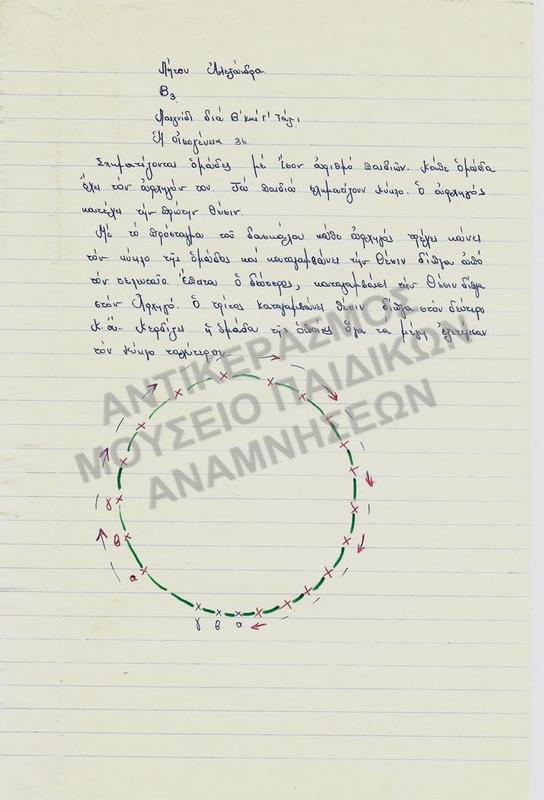 Β3
Παιχνίδι διά Β΄ καί Γ΄ τάξι
Ἡ οἰκογένεια 36
Σχηματίζονται ὁμάδες μέ ἴσον ἀριθμό παιδιῶν. Κάθε ὁμάδα
ἔχει τόν ἀρχηγόν του. Τά παιδιά σχηματίζουν κύκλο. Ὁ ἀρχηγός
κατέχει τήν πρώτην θέσιν.
Μέ τό πρόσταγμα τοῦ δασκάλου κάθε ἀρχηγός τρέχει κάνει
τόν κύκλο τῆς ὁμάδος καί καταλαμβάνει τήν θέσιν δίπλα ἀπό
τόν τελευταῖο. Ἕπεται ὁ δεύτερος, καταλαμβάνει τήν θέσιν δίπλα
στόν Ἀρχηγό. Ὁ τρίτος καταλαμβάνει θέσιν δίπλα στόν δεύτερο
κ.ἄ.. Κερδίζει ἡ ὁμάδα τῆς ὁποίας ὅλα τα μέλη
τόν κύκλο ταχύτερον.
ΑΝΤΙΚΕΡΑΣΜΟΣ
ΜΟΥΣΕΙΟ ΠΑΙΔΙΚΩΝ
ΑΝΑΜΝΗΣΕΩΝ
γ
β
α
γ β α